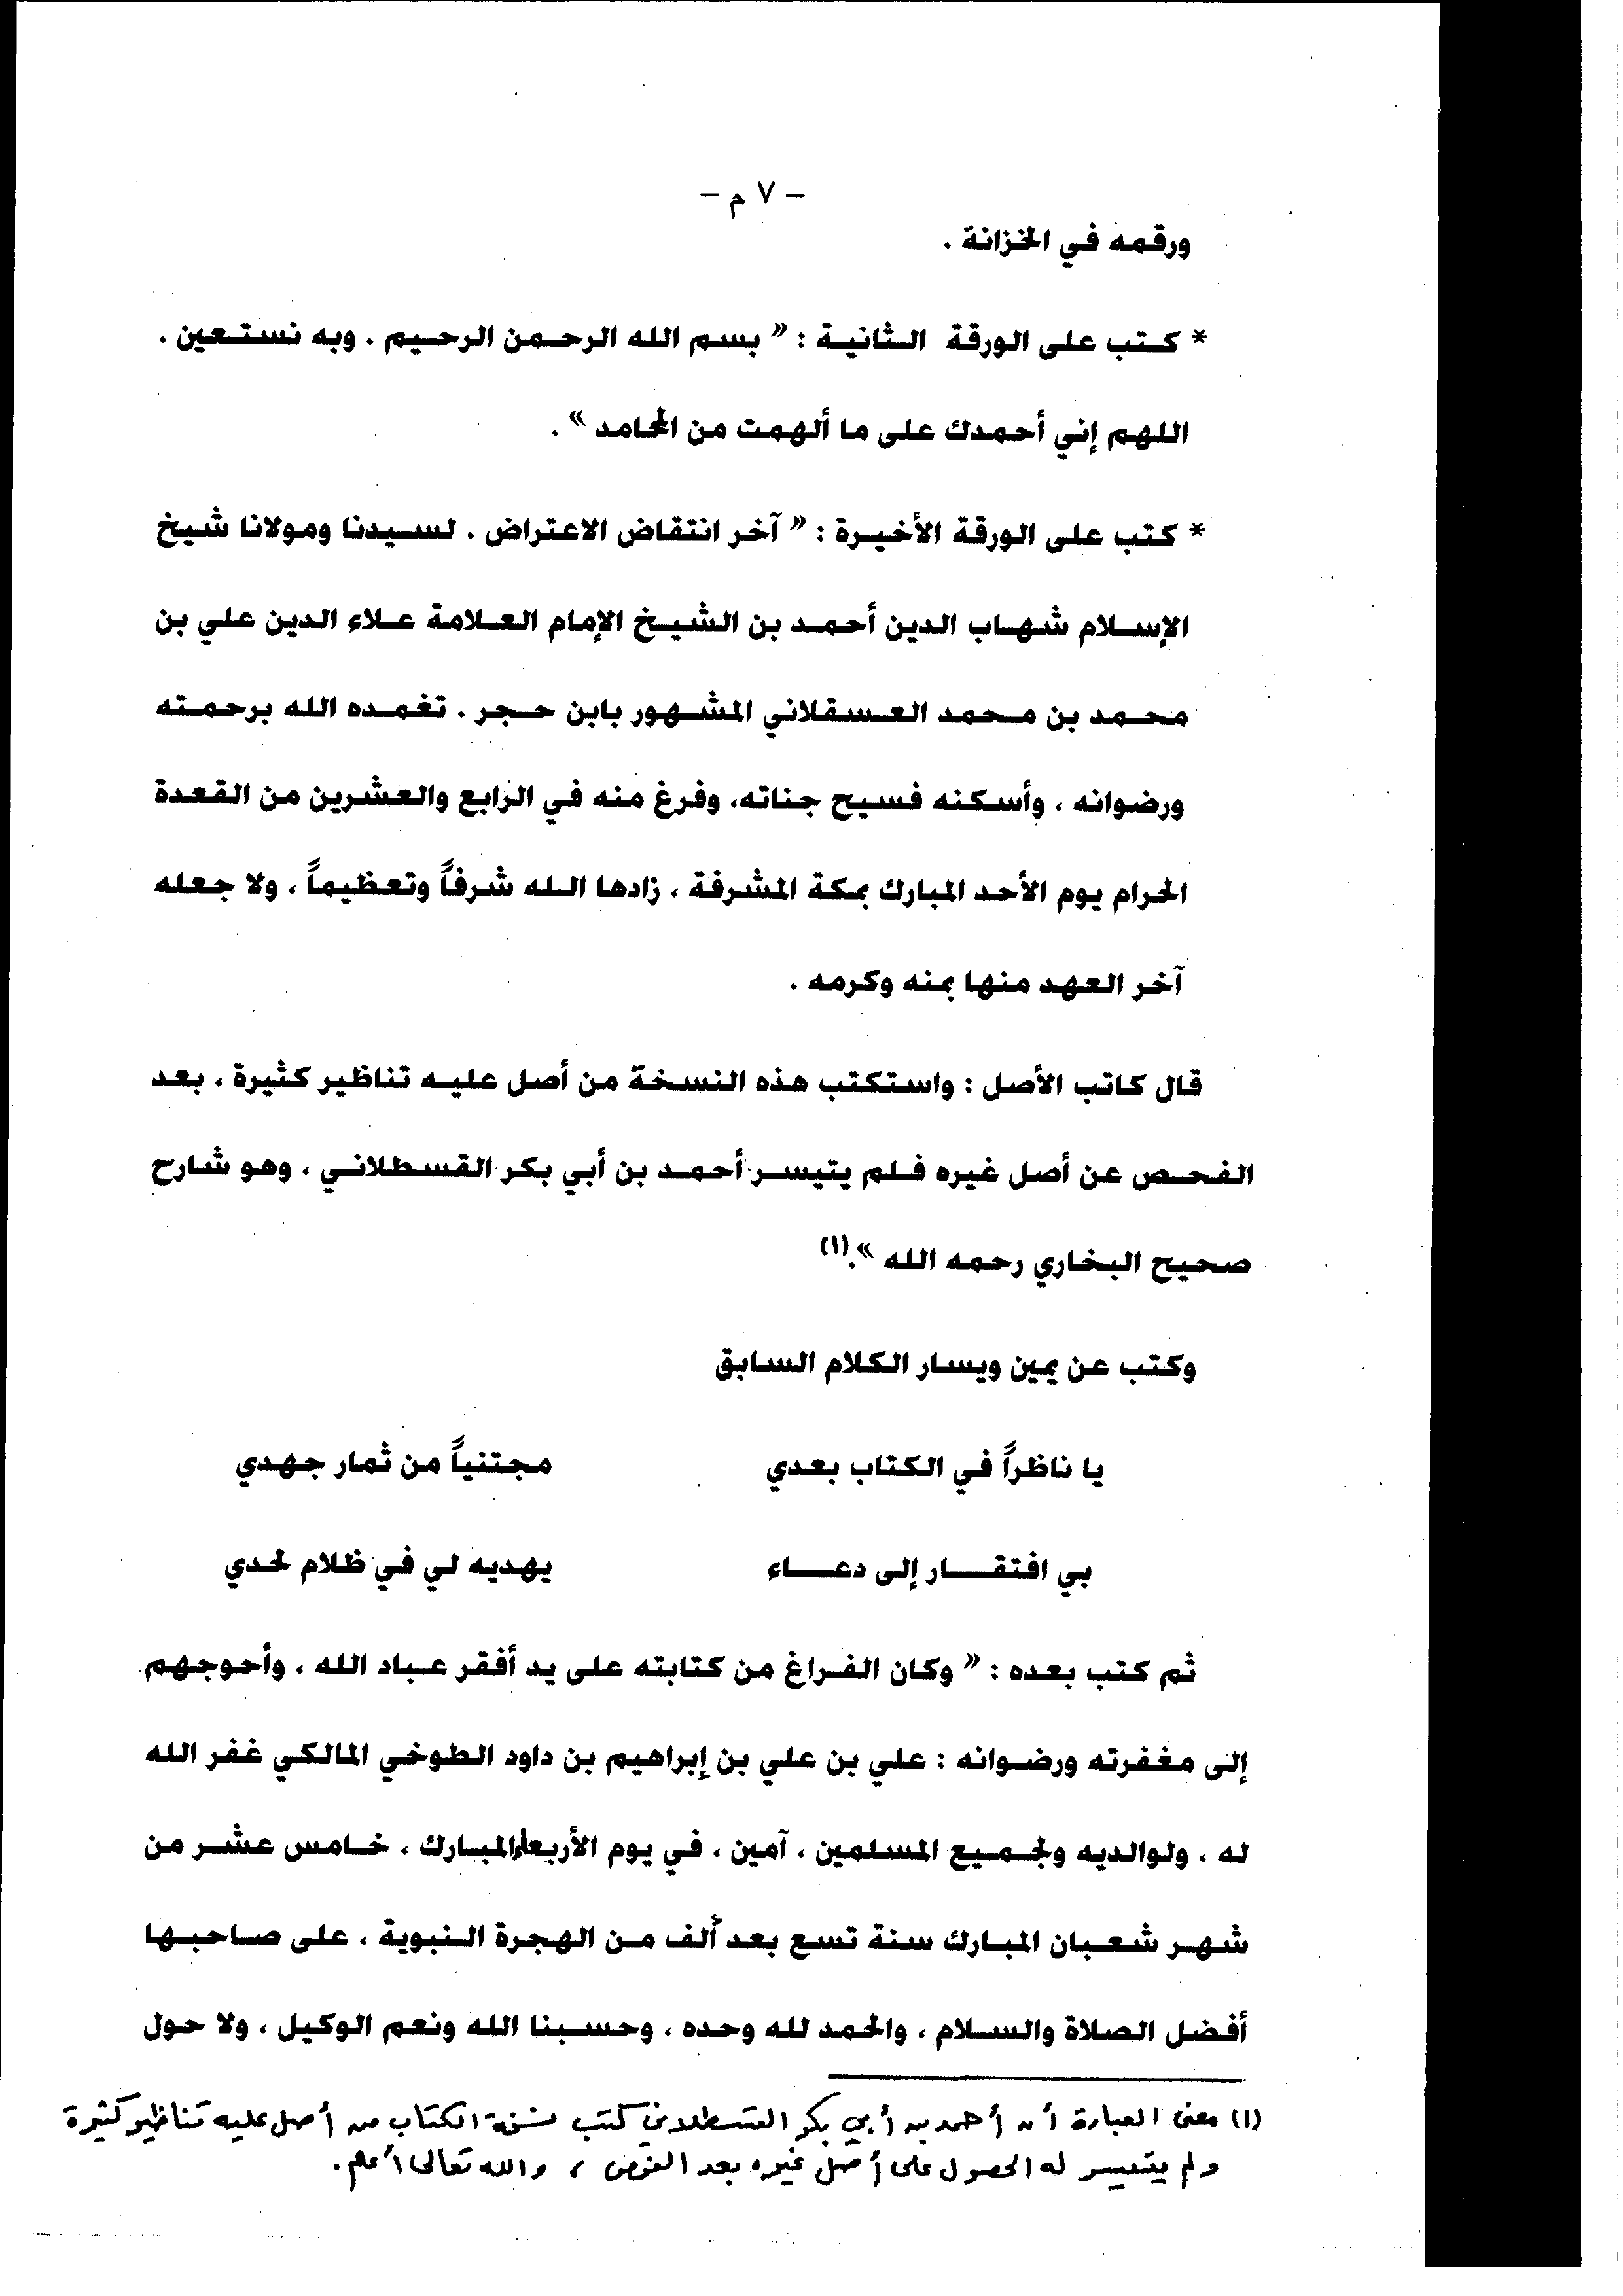 - ٧ م -
ورقمه في الخزانة .
* كتب على الورقة الثانية : « بسم الله الرحمن الرحيم . وبه نستعين .
اللهم إني أحمدك على ما ألهمت من المحامد » .
* كتب على الورقة الأخيرة : « آخر انتقاض الاعتراض . لسيدنا ومولانا شيخ
الإسلام شهاب الدين أحمد بن الشيخ الإمام العلامة علاء الدين علي بن
محمد بن محمد العسقلاني المشهور بابن حجر . تغمده الله برحمته
ورضوانه ، وأسكنه فسيح جناته، وفرغ منه في الرابع والعشرين من القعدة
الحرام يوم الأحد المبارك بمكة المشرفة ، زادها الله شرفاً وتعظيماً ، ولا جعله
آخر العهد منها بمنه وكرمه .
قال كاتب الأصل : واستكتب هذه النسخة من أصل عليه تناظير كثيرة ، بعد
الفحص عن أصل غيره فلم يتيسر أحمد بن أبي بكر القسطلاني ، وهو شارح
صحيح البخاري رحمه الله ».(١)
وكتب عن يمين ويسار الكلام السابق
يا ناظراً في الكتاب بعدي مجتنياً من ثمار جهدي
بي افتقار إلى دعاء يهديه لي في ظلام لحدي
ثم كتب بعده : « وكان الفراغ من كتابته على يد أفقر عباد الله ، وأحوجهم
إلى مغفرته ورضوانه : علي بن علي بن إبراهيم بن داود الطوخي المالكي غفر الله
له ، ولوالديه ولجميع المسلمين ، آمين ، في يوم الأربعاء المبارك ، خامس عشر من
شهر شعبان المبارك سنة تسع بعد ألف من الهجرة النبوية ، على صاحبها
أفضل الصلاة والسلام ، والحمد لله وحده ، وحسبنا الله ونعم الوكيل ، ولا حول
(١) معنى العبارة أن أحمد بن أبي بكر القسطلاني كتب نسخة الكتاب من أصل عليه تناظير كثيرة
ولم يتيسر له الحصول على أصل غيره بعد الفحص ، والله تعالى أعلم .